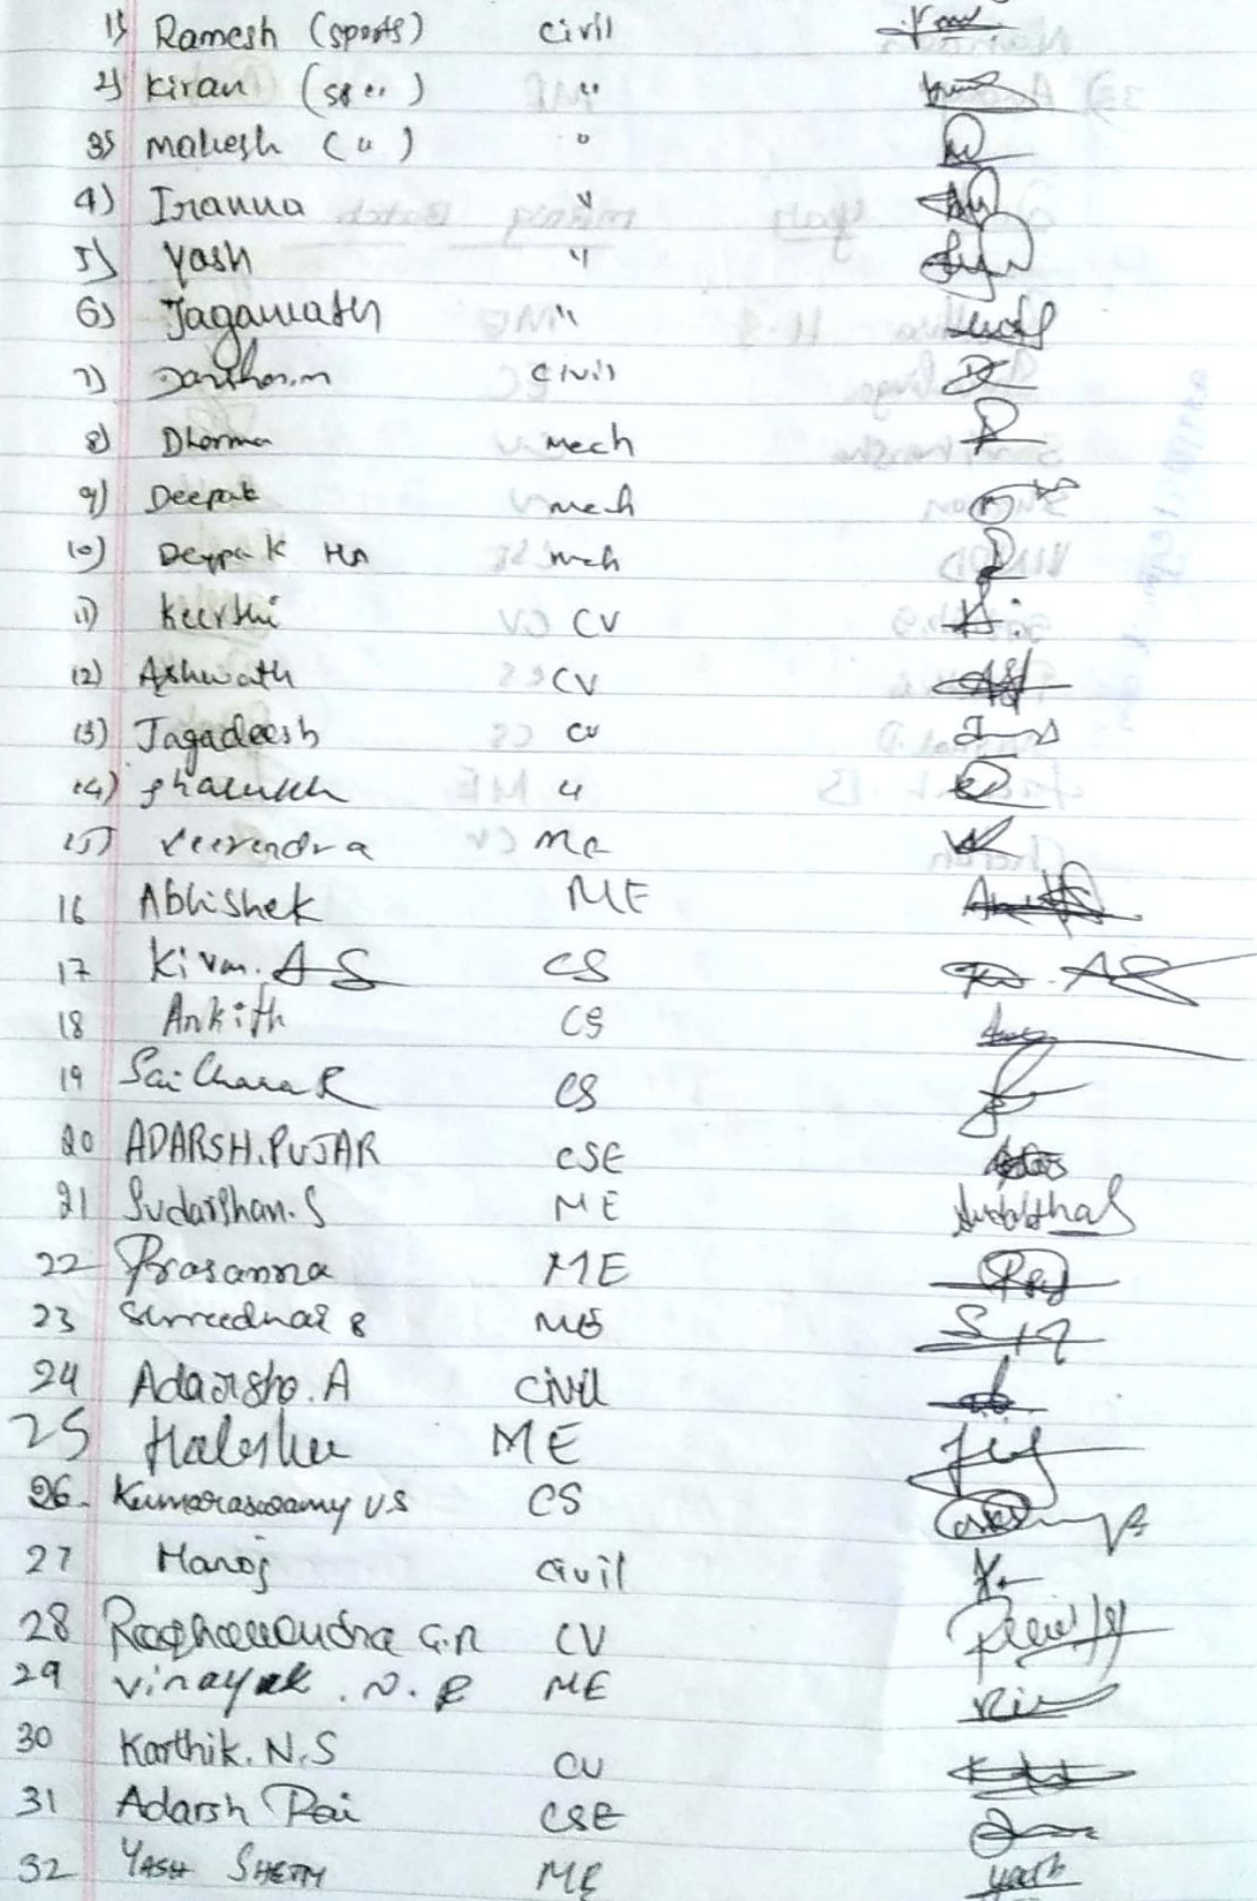 1) Ramesh (sports) civil
2) Kiran (sp ") "
3) Mahesh (") "
4) Iranna "
5) Yash "
6) Jagannath "
7) civil
8) Dharma Mech
9) Deepak mech
10) Deepak HA mech
11) Keerthi CV
12) Ashwath CV
13) Jagadeesh CV
14) "
15) Veerendra ME
16 Abhishek ME
17 Kiran. A S CS
18 Ankith CS
19 Sai Charan R CS
20 ADARSH.PUJAR CSE
21 Sudarshan.S ME
22 Prasanna ME
23 Shreedhar B ME
24 Adarsha.A civil
25 Haleshu ME
26. Kumaraswamy U S CS
27 Manoj civil
28 Raghavendra G.R CV
29 vinayak .N.R ME
30 Karthik.N.S CV
31 Adarsh Pai CSE
32 YASH SHETTY ME yash